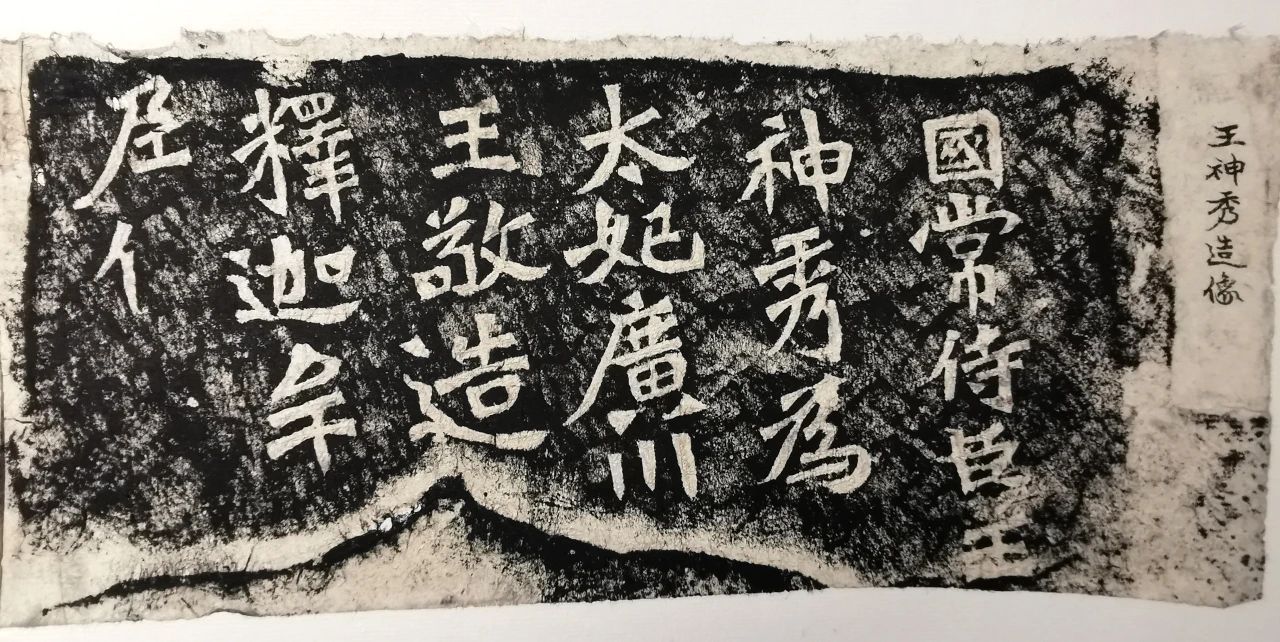 王神秀造像
國常侍臣王
神秀為
太妃廣川
王敬造
釋迦牟
尼亻